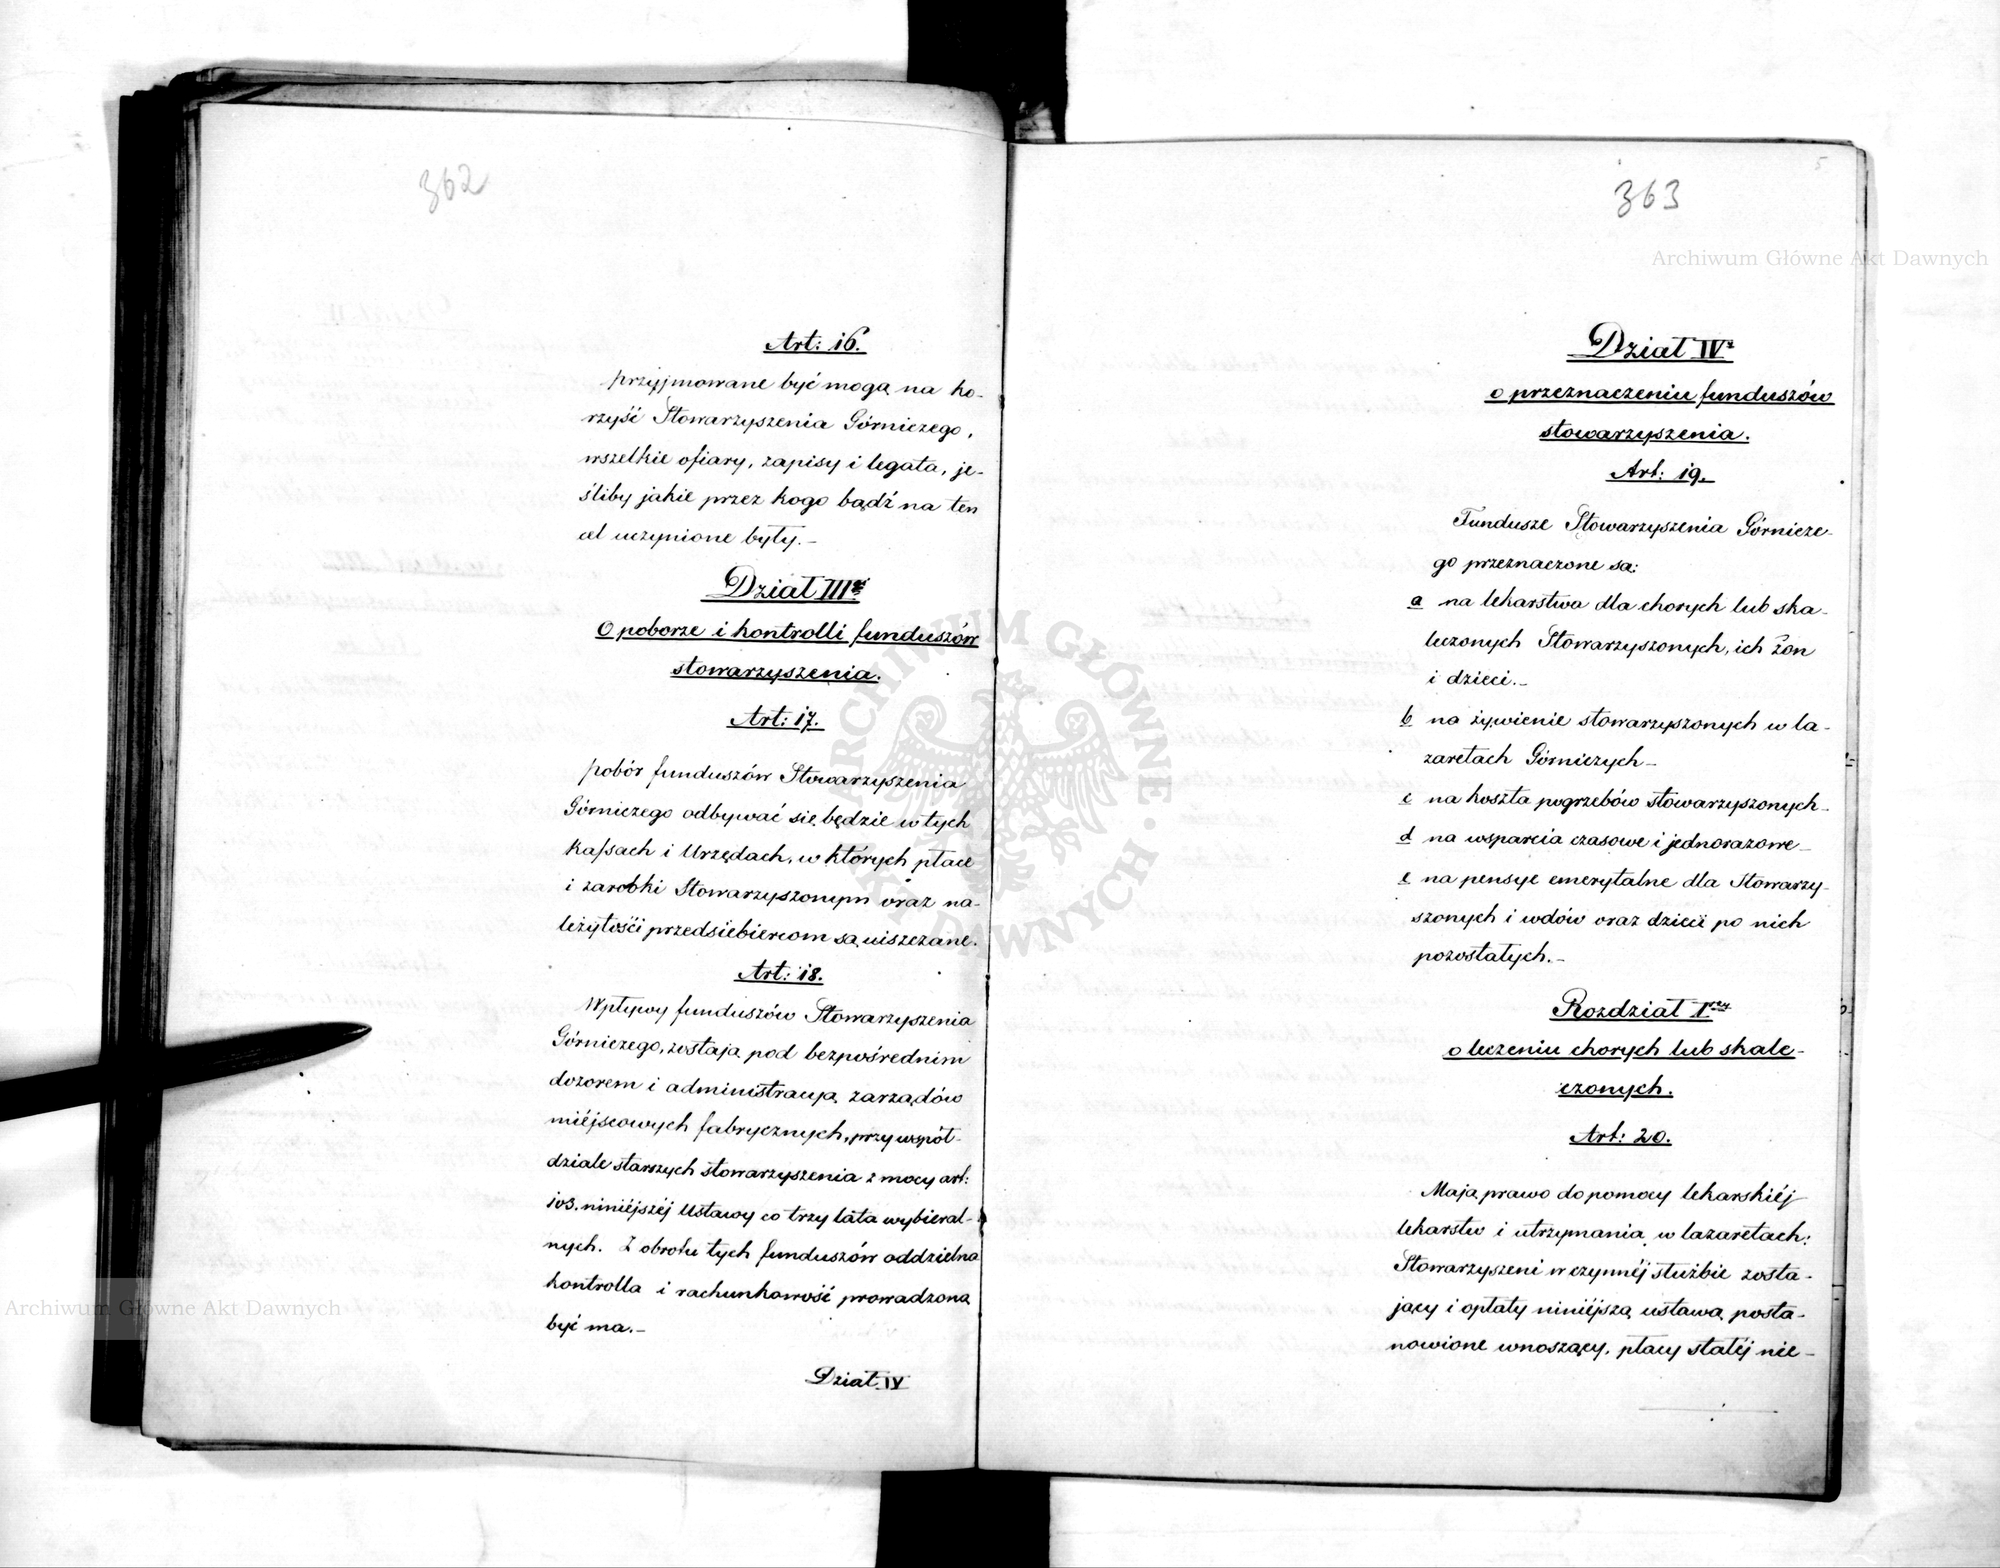 362
Art: 16.
przyjmowane być mogą na ko-
rzyść Stowarzyszenia Górniczego,
wszelkie ofiary, zapisy i legata, je-
śliby jakie przez kogo bądź na ten
cel uczynione były.–
Dział III
O poborze i kontrolli funduszów
stowarzyszenia.
Art: 17.
pobór funduszów Stowarzyszenia
Górniczego odbywać się będzie w tych
Kassach i Urzędach, w których płace
i zarobki Stowarzyszonym oraz na-
leżytości przedsiebiercom są uiszczane.
Art: 18.
Wpływy funduszów Stowarzyszenia
Górniczego, zostają pod bezpośrednim
dozorem i administracyą zarządów
miéjscowych fabrycznych, przy współ-
dziale starszych stowarzyszenia z mocy art:
103. niniéjszéj Ustawy co trzy lata wybieral-
nych. Z obrotu tych funduszów oddzielna
kontrolla i rachunkowość prowadzoną
być ma.–
Dział IV
5
363
Dział IV
o przeznaczeniu funduszów
stowarzyszenia.
Art: 19.
Fundusze Stowarzyszenia Górnicze-
go przeznaczone są:
a na lekarstwa dla chorych lub ska-
leczonych Stowarzyszonych, ich żon
i dzieci.–
b na żywienie stowarzyszonych w la-
zaretach Górniczych–
c na koszta pogrzebów stowarzyszonych–
d na wsparcia czasowe i jednorazowe–
e na pensye emerytalne dla Stowarzy-
szonych i wdów oraz dzieci po nich
pozostałych.–
Rozdział I
o leczeniu chorych lub skale-
czonych.
Art: 20.
Mają prawo do pomocy lekarskiéj
lekarstw i utrzymania w lazaretach:
Stowarzyszeni w czynnéj służbie zosta-
jący i opłaty niniéjszą ustawą posta-
nowione wnoszący, płacy stałéj nie-
Archiwum Główne Akt Dawnych
ARCHIWUM GŁÓWNE AKT DAWNYCH
Archiwum Główne Akt Dawnych